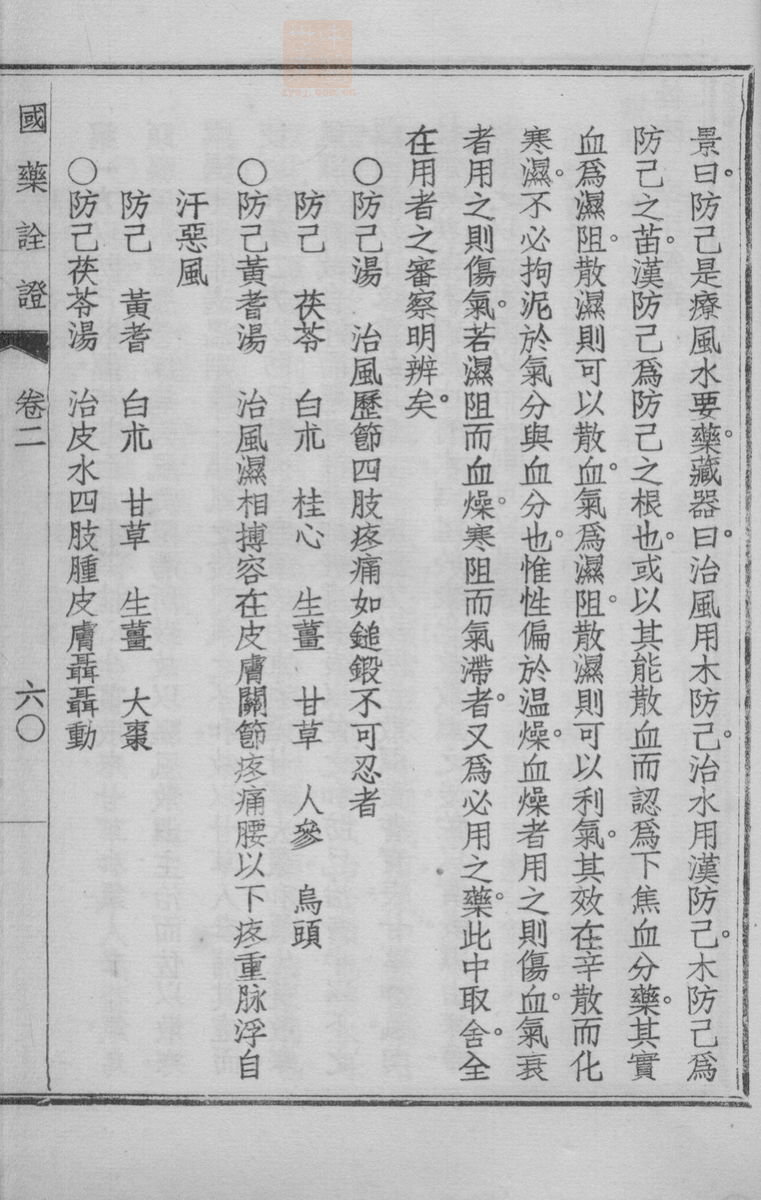 景曰。防己是療風水要藥。藏器曰。治風用木防己。治水用漢防己。木防己爲
防己之苗。漢防己爲防己之根也。或以其能散血而認爲下焦血分藥。其實
血爲濕阻。散濕則可以散血。氣爲濕阻。散濕則可以利氣。其效在辛散而化
寒濕。不必拘泥於氣分與血分也。惟性偏於温燥。血燥者用之則傷血。氣衰
者用之則傷氣。若濕阻而血燥。寒阻而氣滯者。又爲必用之藥。此中取舍。全
在用者之審察明辨矣。
○防己湯 治風歷節四肢疼痛如鎚鍛不可忍者
防己 茯苓 白朮 桂心 生薑 甘草 人參 烏頭
○防己黃耆湯 治風濕相搏容在皮膚關節疼痛腰以下疼重脉浮自
汗惡風
防己 黃耆 白朮 甘草 生薑 大棗
○防己茯苓湯 治皮水四肢腫皮膚聶聶動
國藥詮證 卷二 六〇